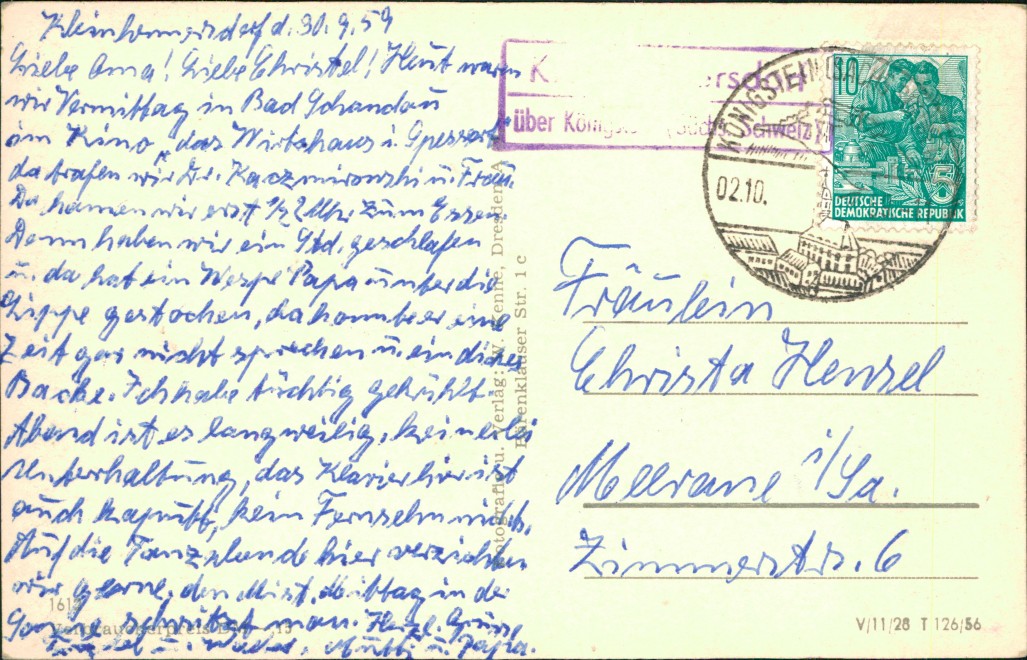 Kleinhennersdorf d. 30.9.59
Liebe Oma! Liebe Christel! Heut waren
wir Vormittag in Bad Schandau
im Kino „das Wirtshaus i. Spessart"
da trafen wir Dr. Kaczmirowski u. Frau.
Da kamen wir erst 1/2 2 Uhr zum Essen.
Dann haben wir ein Std. geschlafen
u. da hat ein Wespe Papa unter die
Lippe gestochen, da konnte er eine
Zeit gar nicht sprechen u. ein dicke
Backe. Ich habe tüchtig gekühlt.
Abend ist es langweilig, keinerlei
Unterhaltung, das Klavier hier ist
auch kaputt, kein Fernsehn nichts.
Auf die Tanzabende hier verzichten
wir gerne, den Mist. Mittag in der
Sonne schwitzt man. Herzl. Grüße
u. Mutti u. Papa.
über Königstein (Sächs. Schweiz)
KÖNIGSTEIN
02.10.
10
5
DEUTSCHE
DEMOKRATISCHE REPUBLIK
Fräulein
Christa Hensel
Meerane i/Sa.
Zimmerstr. 6
Fotografie u. Verlag: W. Kenne, Dresden A
Bärenklauser Str. 1 c
Verbraucherpreis
V/11/28 T 126/56